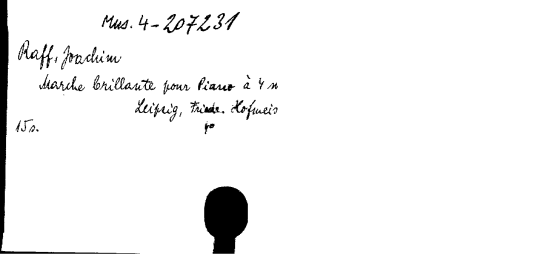 Mus. 4-207231
Raff, Joachim
Marche brillante pour Piano à 4 m
Leipzig, Friedr. Hofmeis
15 s.